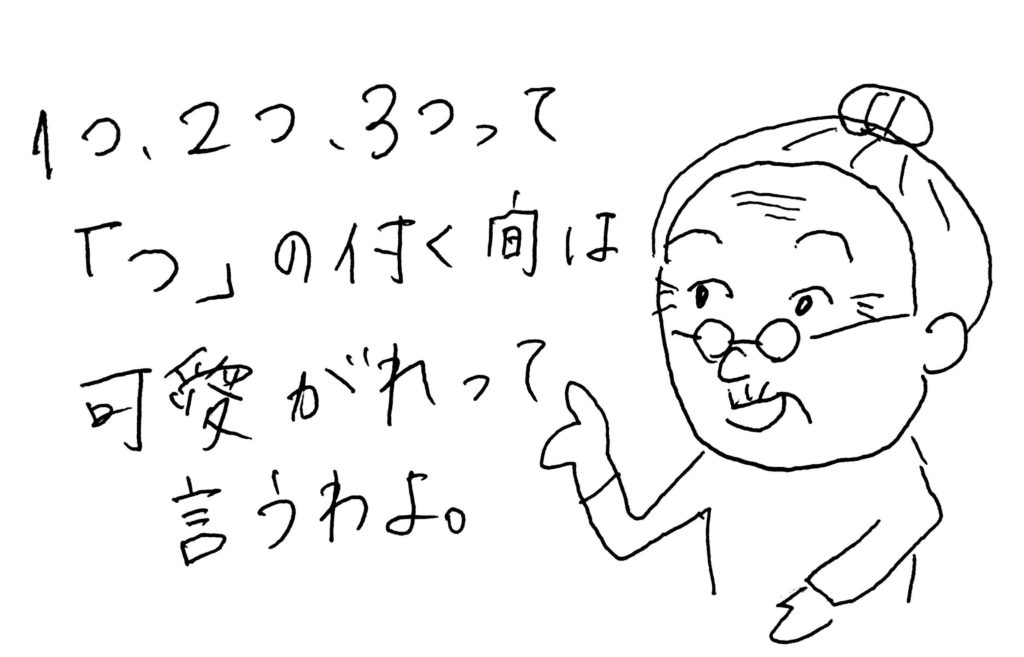 1つ、2つ、3つって
「つ」の付く間は
可愛がれって
言うわよ。